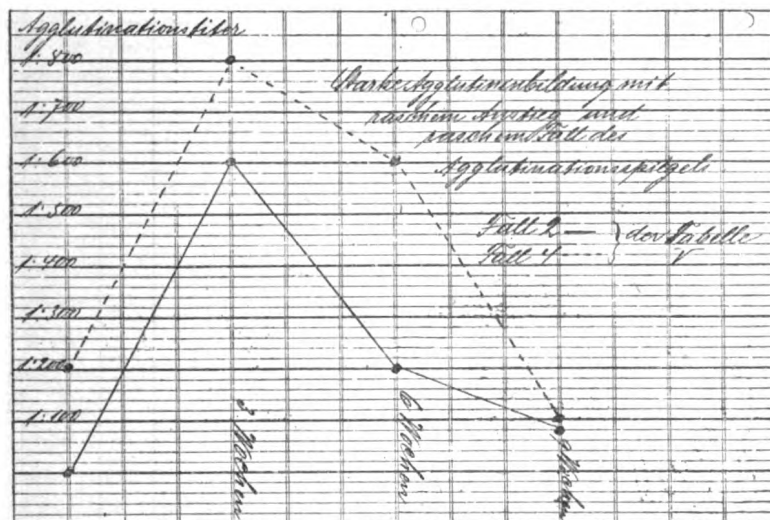 Agglutinationstiter
1:800
1:700
1:600
1:500
1:400
1:300
1:200
1:100
Starke Agglutininbildung mit
raschem Anstieg und
raschem Fall des
Agglutinationsspiegels
Fall 2 —
Fall 4 ----
} der Tabelle
V
3 Wochen
6 Wochen
9 Wochen